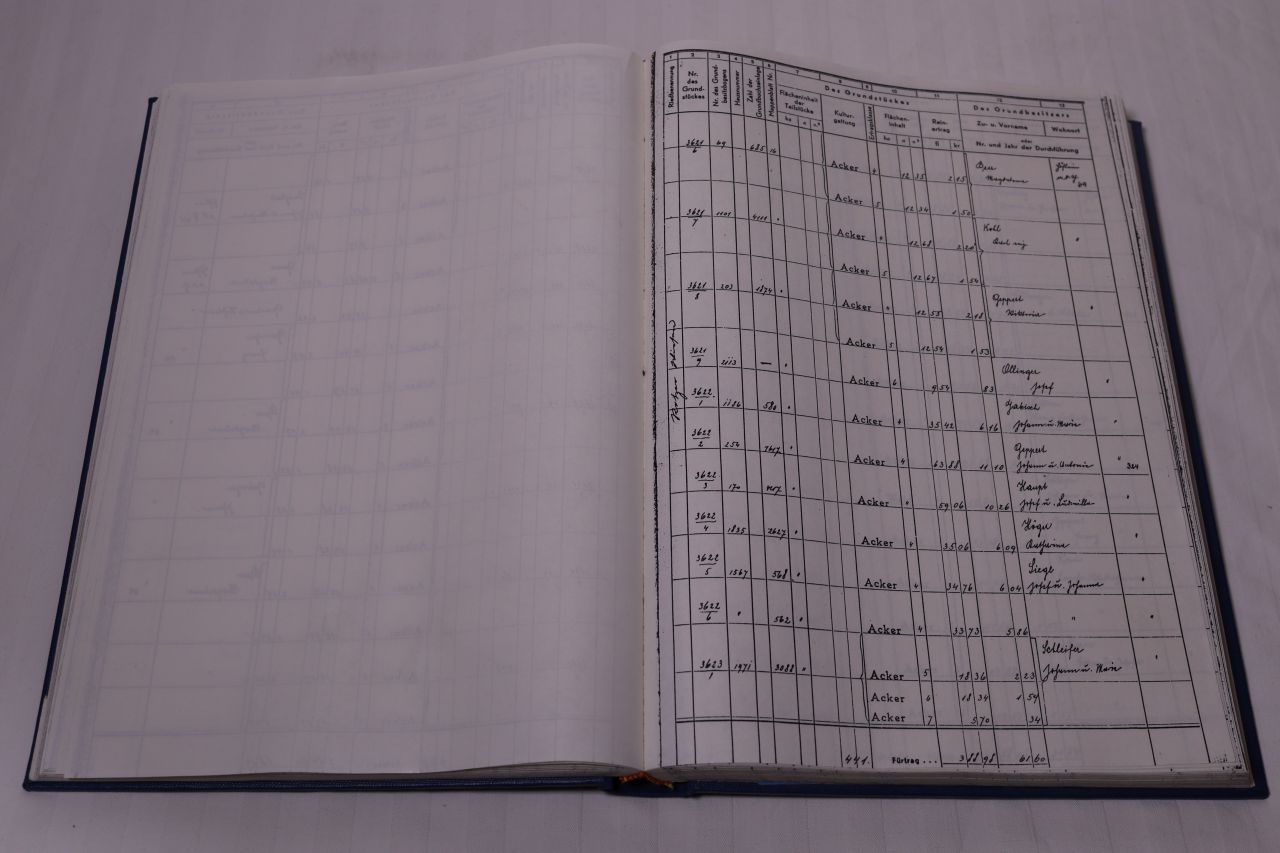 1 2 3 4 5 6 7 8 9 10 11 12 13
Riedbenennung
Nr. des Grundstückes
Nr. des Grundbesitzbogens
Hausnummer
Zahl der Grundbuchseinlage
Mappenblatt Nr.
Des Grundstückes
Flächeninhalt der Teilstücke
ha a m²
Kulturgattung
Ertragsklasse
Flächeninhalt
ha a m²
Reinertrag
fl kr
Des Grundbesitzers
Zu- u. Vorname Wohnort
oder
Nr. und Jahr der Durchführung
3621/6 69 685 16 Acker 4 12 35 2 15
Magdalena
Acker 5 12 34 1 50
3621/7 1101 4111 " Acker " 12 68 2 20 Koll "
Acker 5 12 67 1 54
3621/8 203 1874 " Acker " 12 55 2 18 Geppert "
Viktoria
Acker 5 12 54 1 53
3621/9 2113 — " Acker 6 9 54 83 Ollinger "
Josef
3622/1 1186 580 " Acker 4 35 42 6 16 "
Johann u. Marie
3622/2 254 " Acker 4 63 88 11 10 Geppert " 324
Johann u. Antonie
3622/3 170 " Acker " 59 06 10 26 Haupt "
Josef u. Ludmilla
3622/4 1835 2627 " Acker 4 35 06 6 09 Högel "
Katharina
3622/5 1567 568 " Acker 4 34 76 6 04 Siegl "
Josef u. Johanna
3622/6 " 562 " Acker 4 33 73 5 86 " "
3623/1 1971 3088 " Acker 5 18 36 2 23 Schleifer "
Johann u. Marie
Acker 6 18 34 1 54
Acker 7 5 70 34
441. Fürtrag . . . 3 88 98 61 60